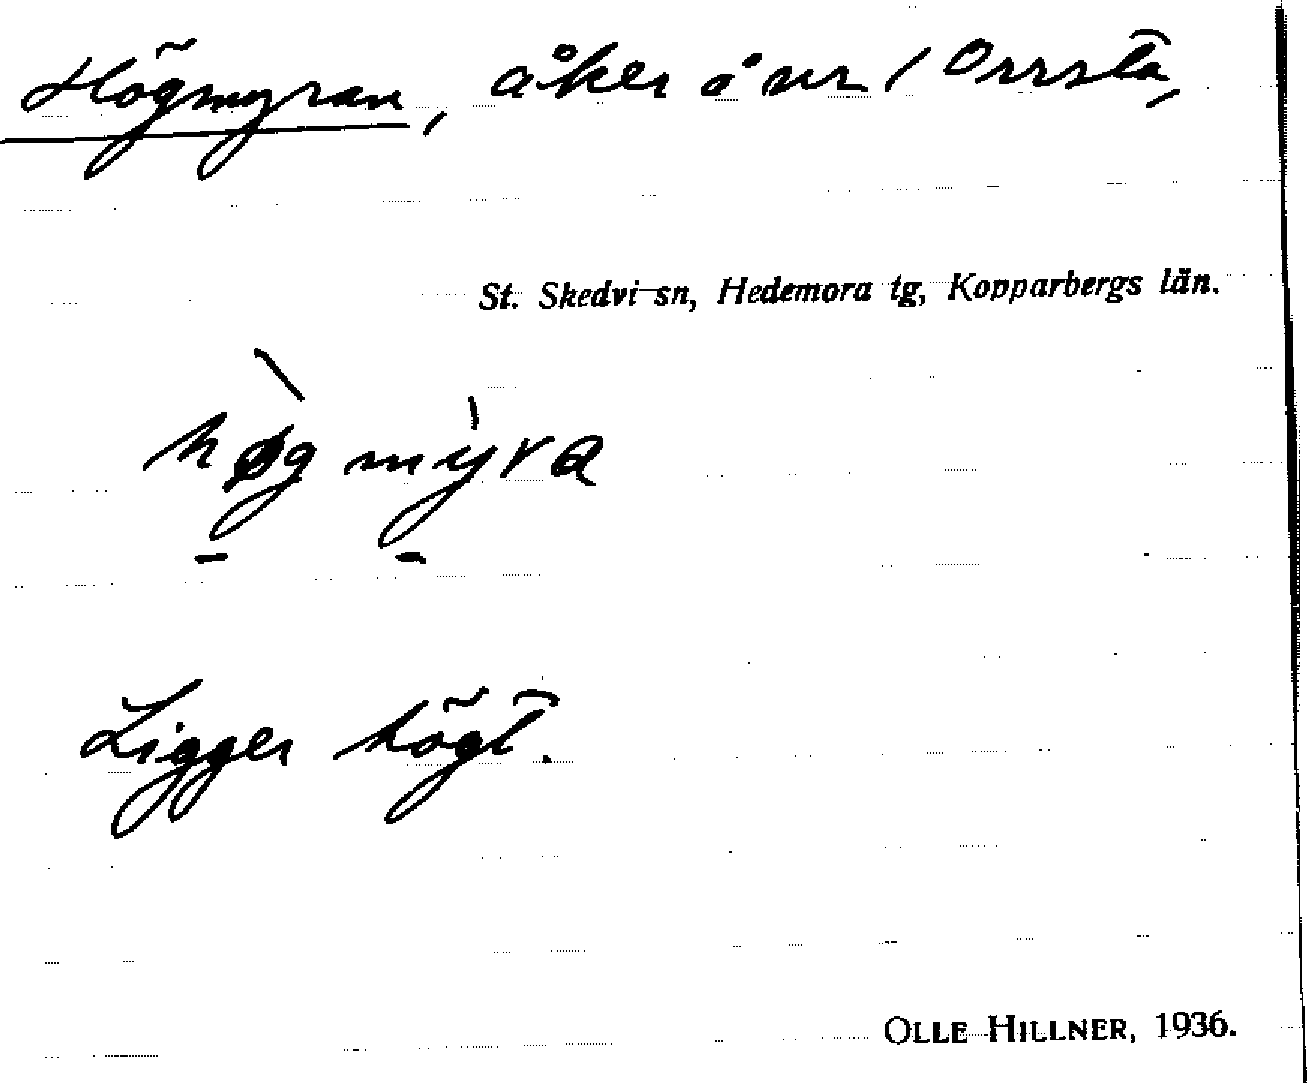 Högmyran, åker å nr 1 Orrsta,
St. Skedvi sn, Hedemora tg, Kopparbergs län.
høgmyra
Ligger högt.
OLLE HILLNER, 1936.